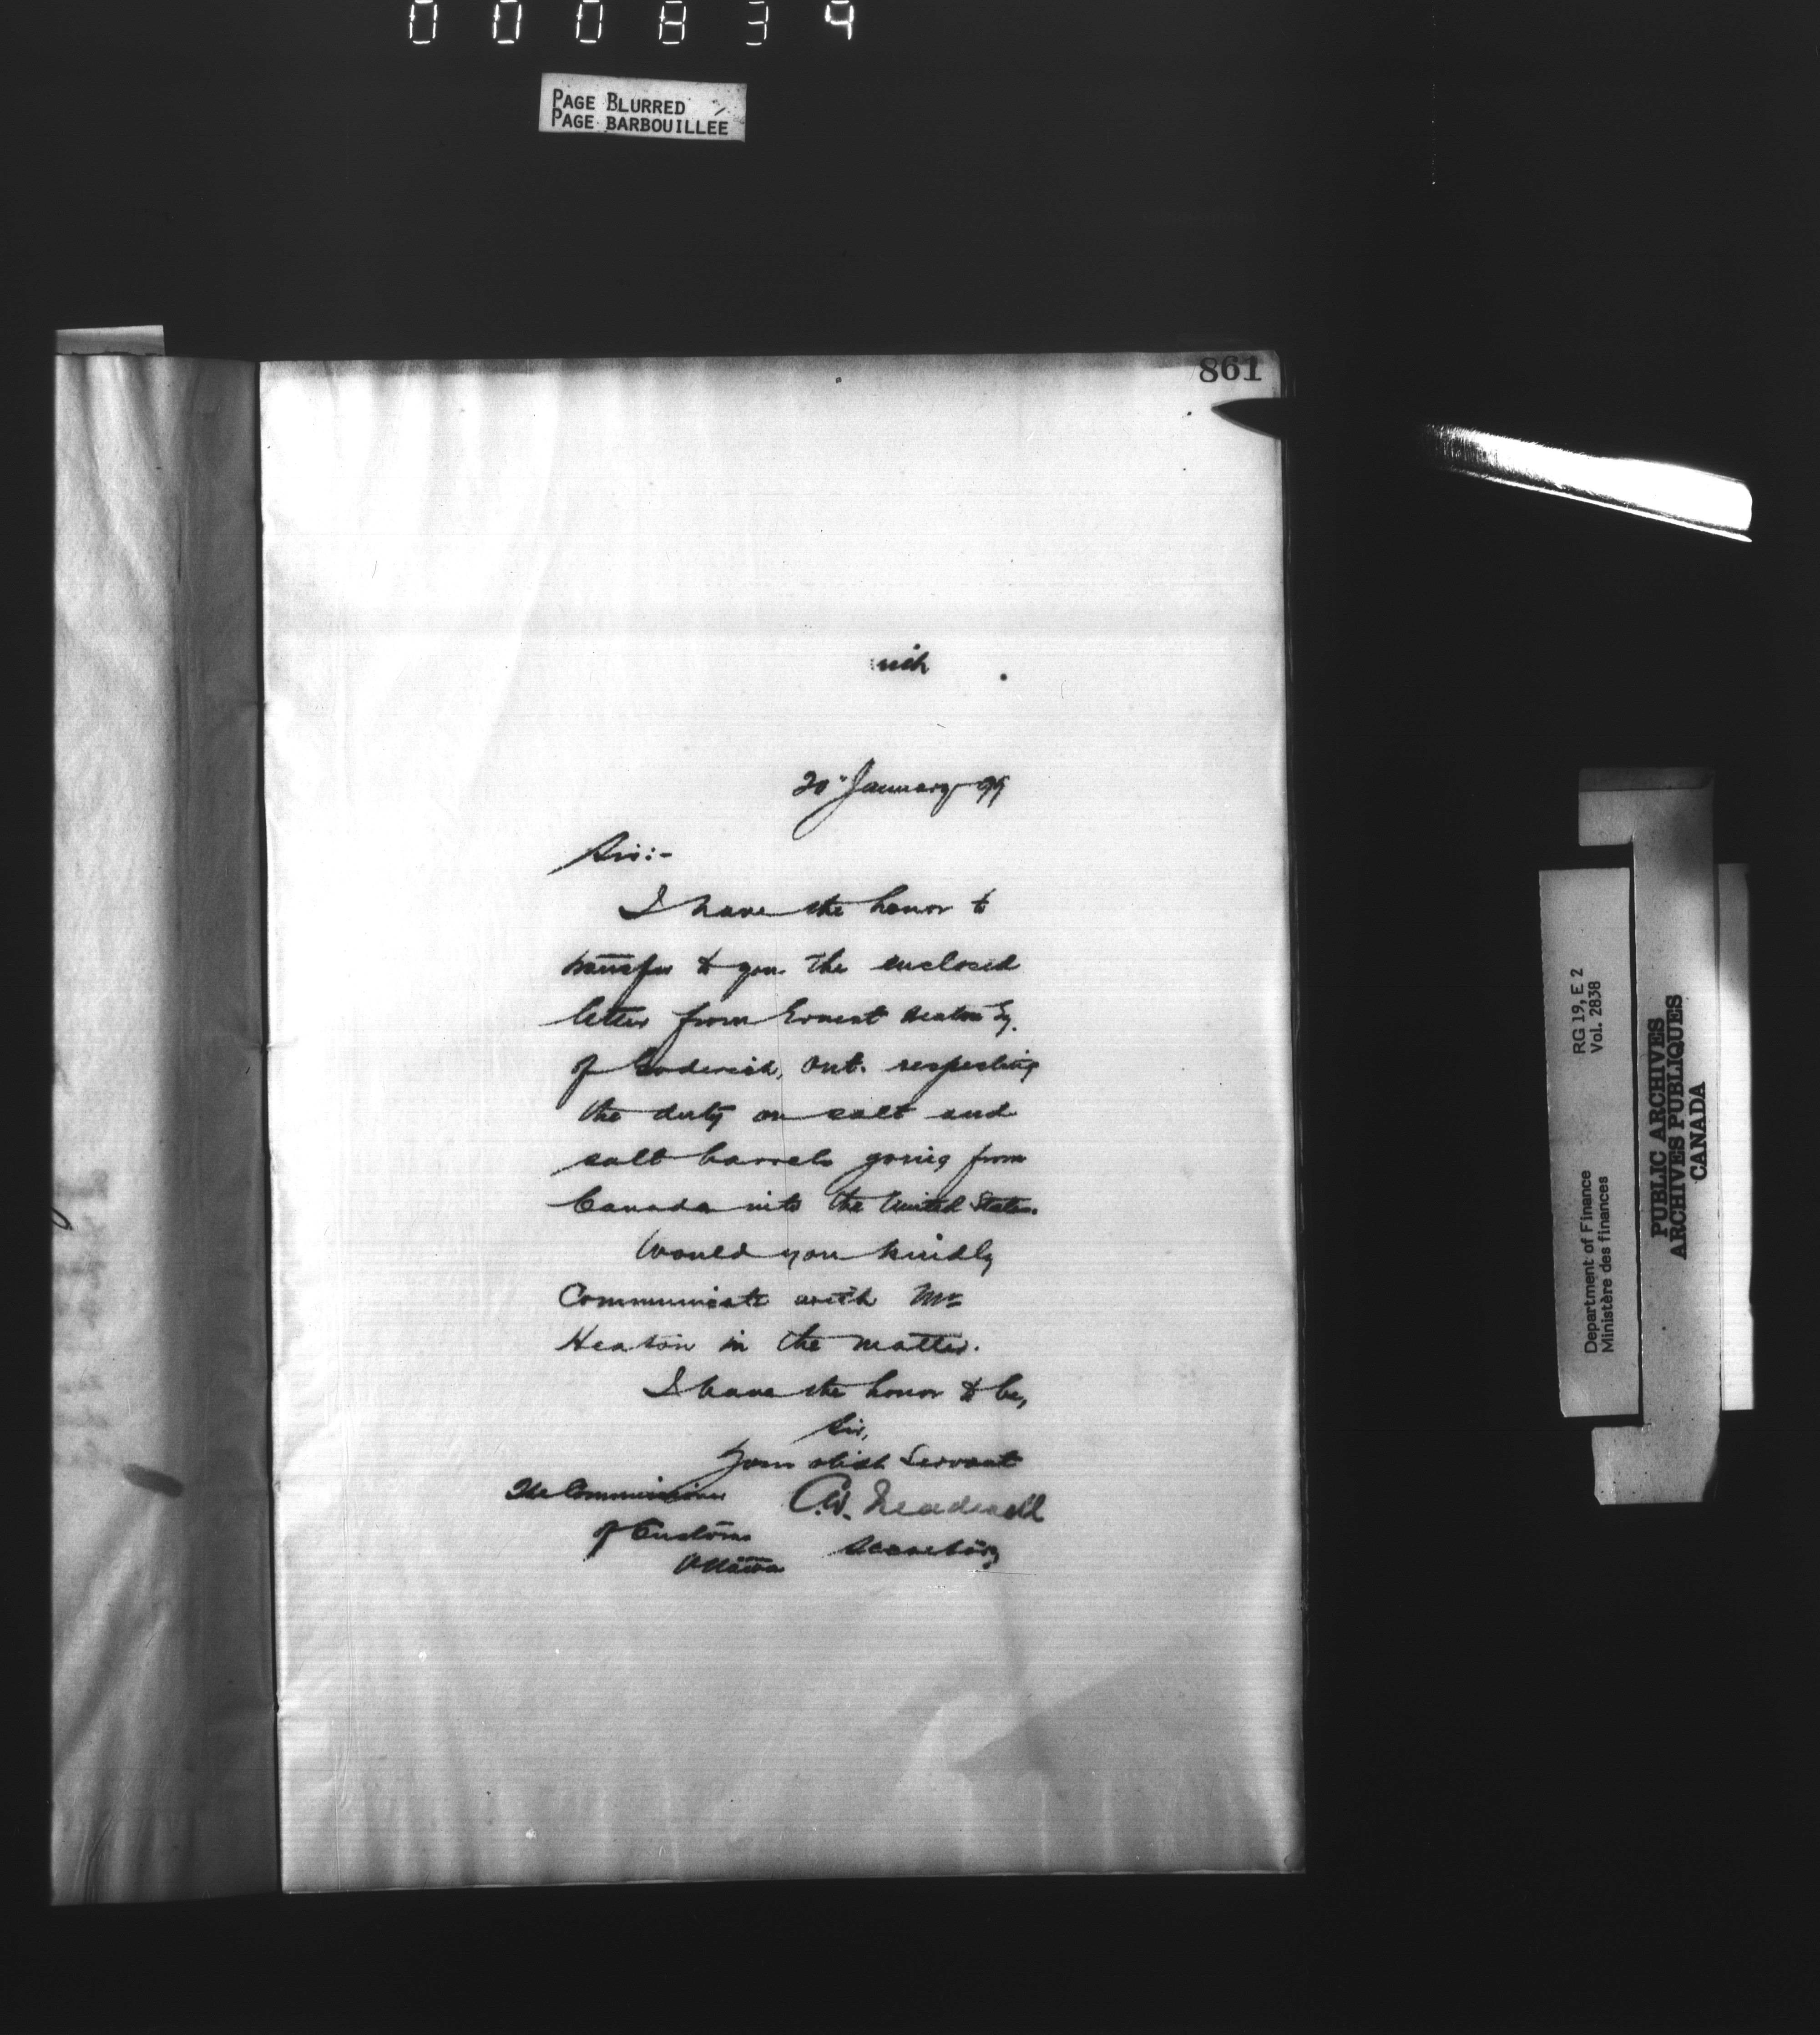 000834
PAGE BLURRED
PAGE BARBOUILLEE
861
20" January 99
Sir:-
I have the honor to
transfer to you the enclosed
letter from Ernest Heaton Esq.
of Goderich, Ont. respecting
the duty on salt and
salt barrels going from
Canada into the United States.
Would you kindly
Communicate with Mr
Heaton in the matter.
I have the honor to be,
Sir,
Your obedt Servant
The Commissioner
of Customs
Ottawa
C.W.
Secretary
RG 19, E 2
Vol. 2838
Department of Finance
Ministère des finances
PUBLIC ARCHIVES
ARCHIVES PUBLIQUES
CANADA